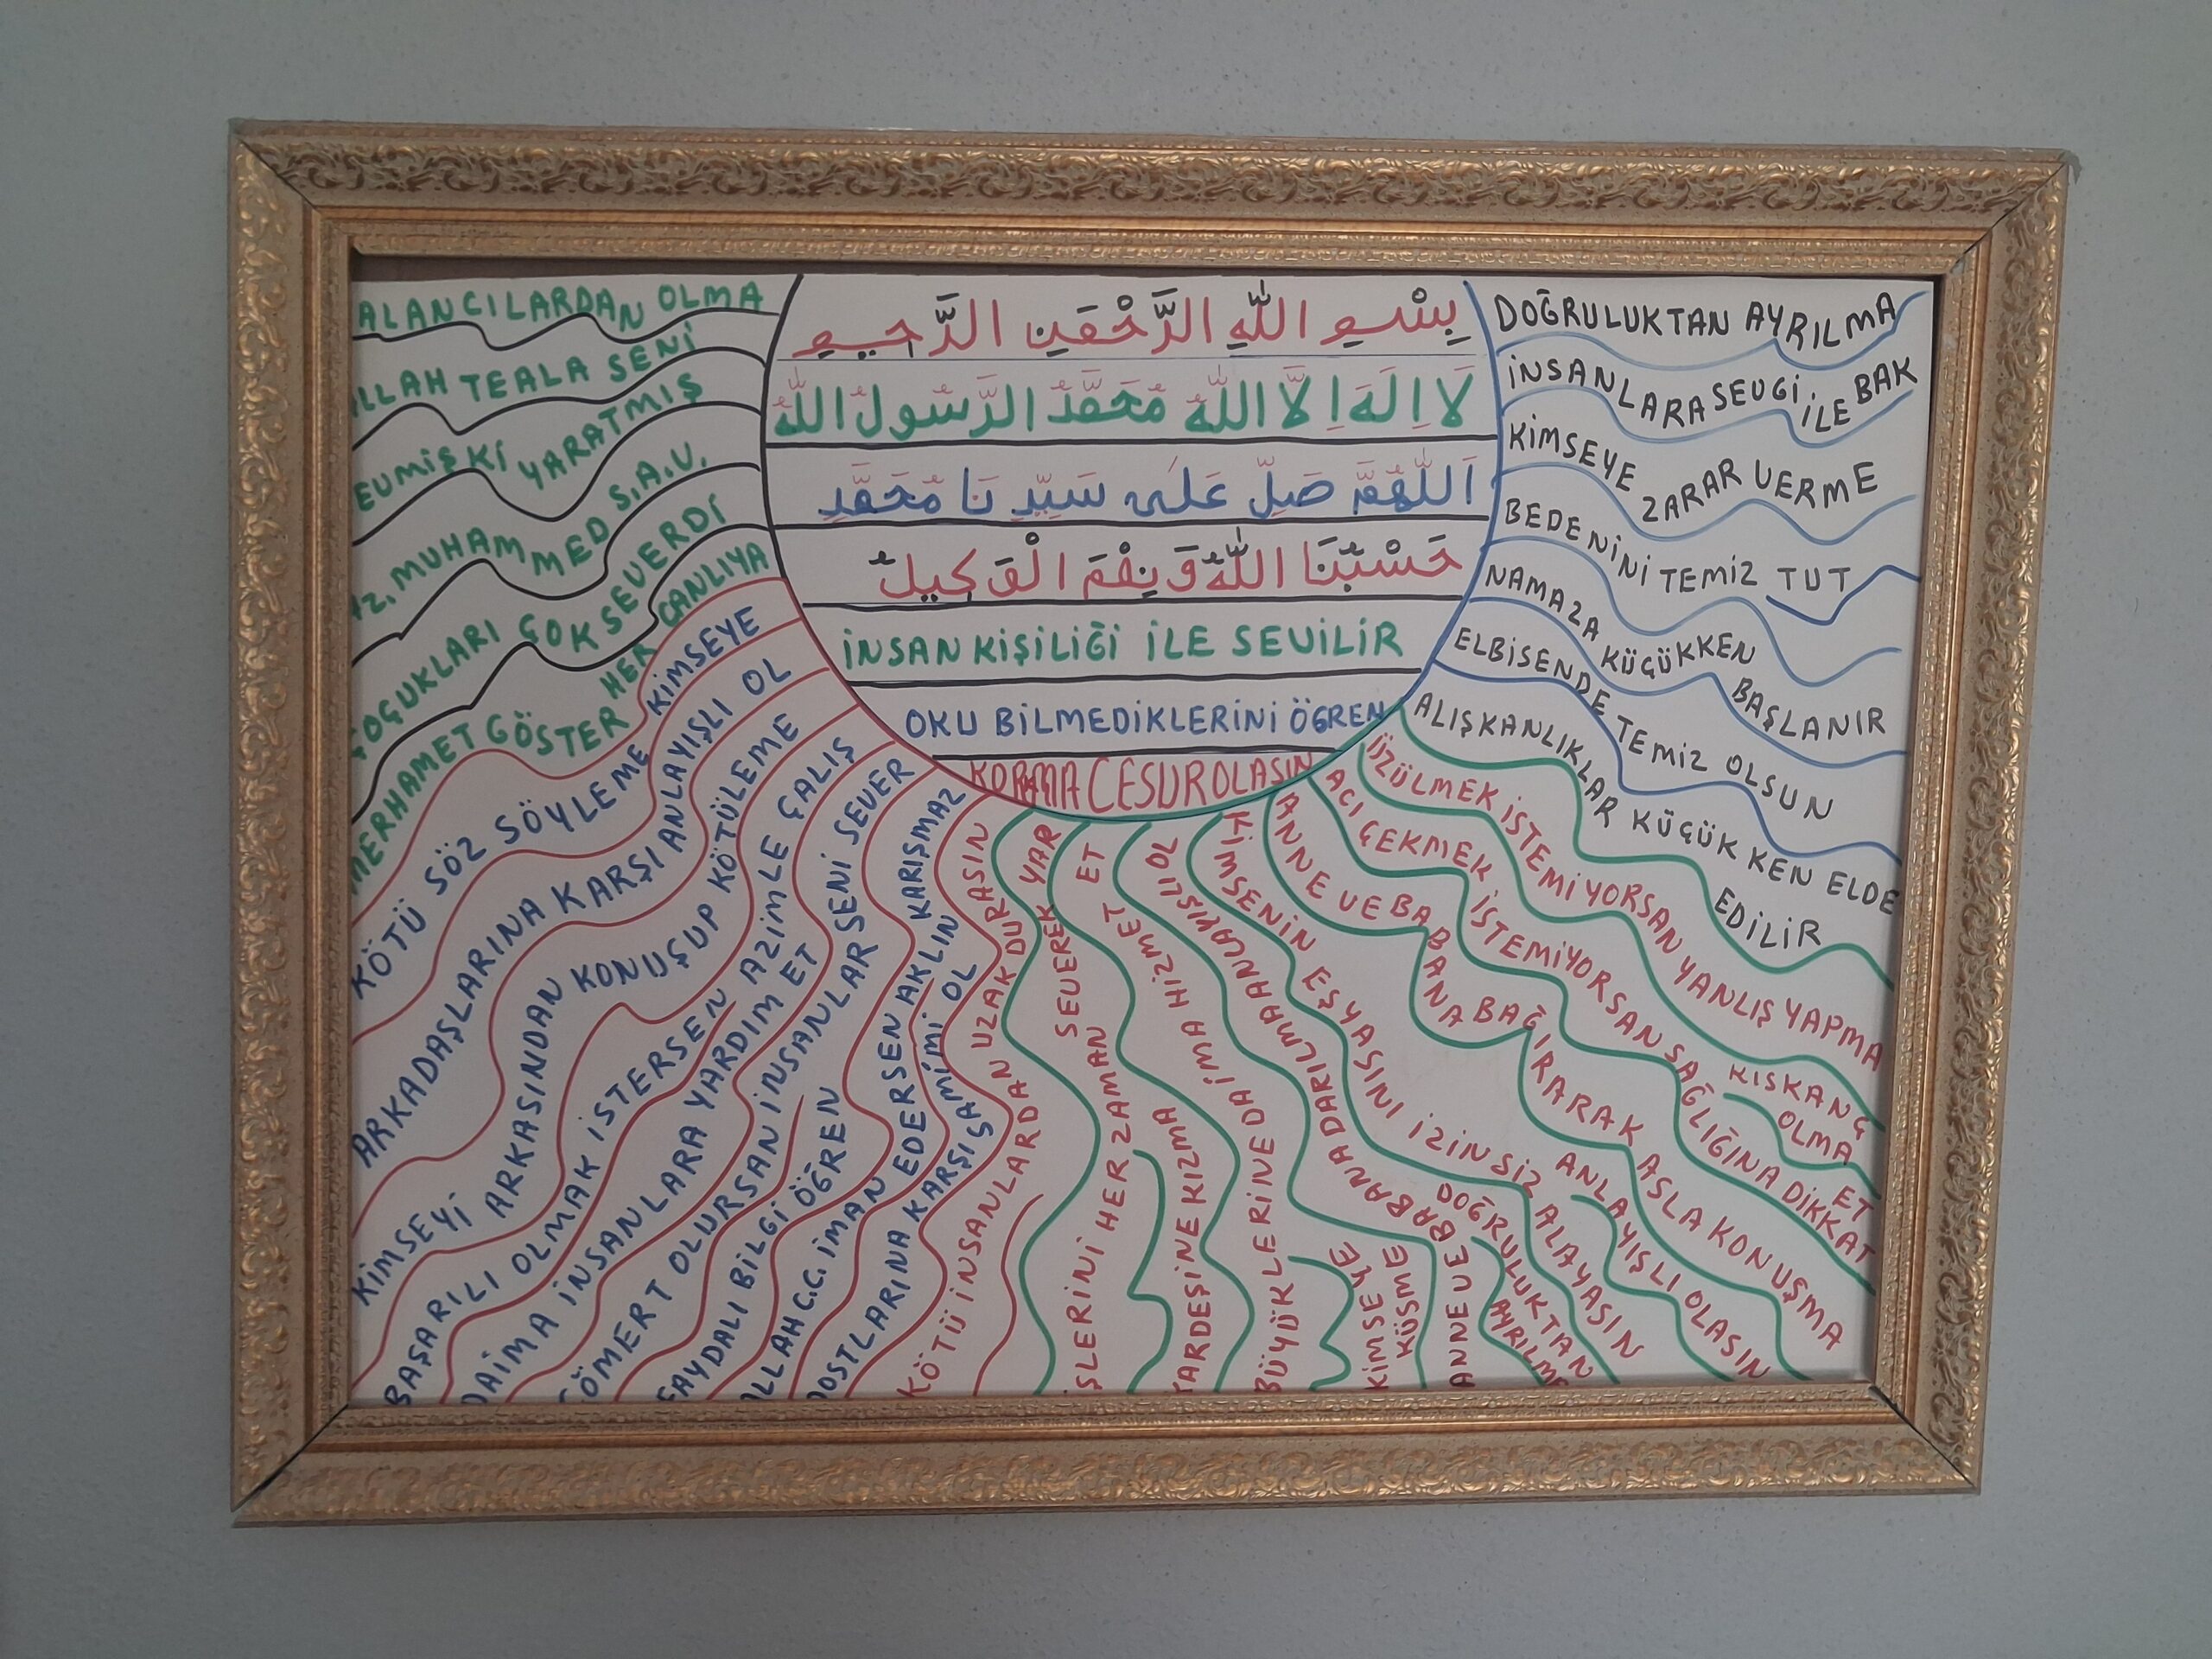 بِسْمِ اللّٰهِ الرَّحْمٰنِ الرَّحِيمِ
لَا اِلَهَ اِلَّا اللّٰهُ مُحَمَّدُ الرَّسُولُ اللّٰهُ
اَللّٰهُمَّ صَلِّ عَلَى سَيِّدِنَا مُحَمَّدٍ
حَسْبُنَا اللّٰهُ وَنِعْمَ الْوَكِيلُ
İNSAN KİŞİLİĞİ İLE SEVİLİR
OKU BİLMEDİKLERİNİ ÖĞREN
KORMA CESUR OLASIN
ALANCILARDAN OLMA
LLAH TEALA SENİ
EVMİŞ Kİ YARATMIŞ
Z. MUHAMMED S.A.V.
ÇOÇUKLARI ÇOK SEVERDİ
MERHAMET GÖSTER HER CANLIYA
KÖTÜ SÖZ SÖYLEME KİMSEYE
ARKADAŞLARINA KARŞI ANLAYIŞLI OL
KİMSEYİ ARKASINDAN KONUŞUP KÖTÜLEME
BAŞARILI OLMAK İSTERSEN AZİMLE ÇALIŞ
DAİMA İNSANLARA YARDIM ET
ÖMERT OLURSAN İNSANLAR SENİ SEVER
FAYDALI BİLGİ ÖĞREN
LLAH C.C. İMAN EDERSEN AKLIN KARIŞMAZ
DOSTLARINA KARŞI SAMİMİ OL
KÖTÜ İNSANLARDAN UZAK DURASIN
ŞLERİNİ HER ZAMAN SEVEREK YAP
KARDEŞİNE KIZMA
BÜYÜKLERİNE DAİMA HİZMET ET
KİMSEYE
KÜSME
ANNE VE BABANA DARILMA ANLAYIŞLI OL
DOĞRULUKTAN
AYRILMA
KİMSENİN EŞYASINI İZİNSİZ ALAYASIN
ANLAYIŞLI OLASIN
ANNE VE BABANA BAĞIRARAK ASLA KONUŞMA
ACI ÇEKMEK İSTEMİYORSAN SAĞLIĞINA DİKKAT ET
KISKANÇ
OLMA
ÜZÜLMEK İSTEMİYORSAN YANLIŞ YAPMA
DOĞRULUKTAN AYRILMA
İNSANLARA SEVGİ İLE BAK
KİMSEYE ZARAR VERME
BEDENİNİ TEMİZ TUT
NAMAZA KÜÇÜKKEN BAŞLANIR
ELBİSENDE TEMİZ OLSUN
ALIŞKANLIKLAR KÜÇÜK KEN ELDE
EDİLİR